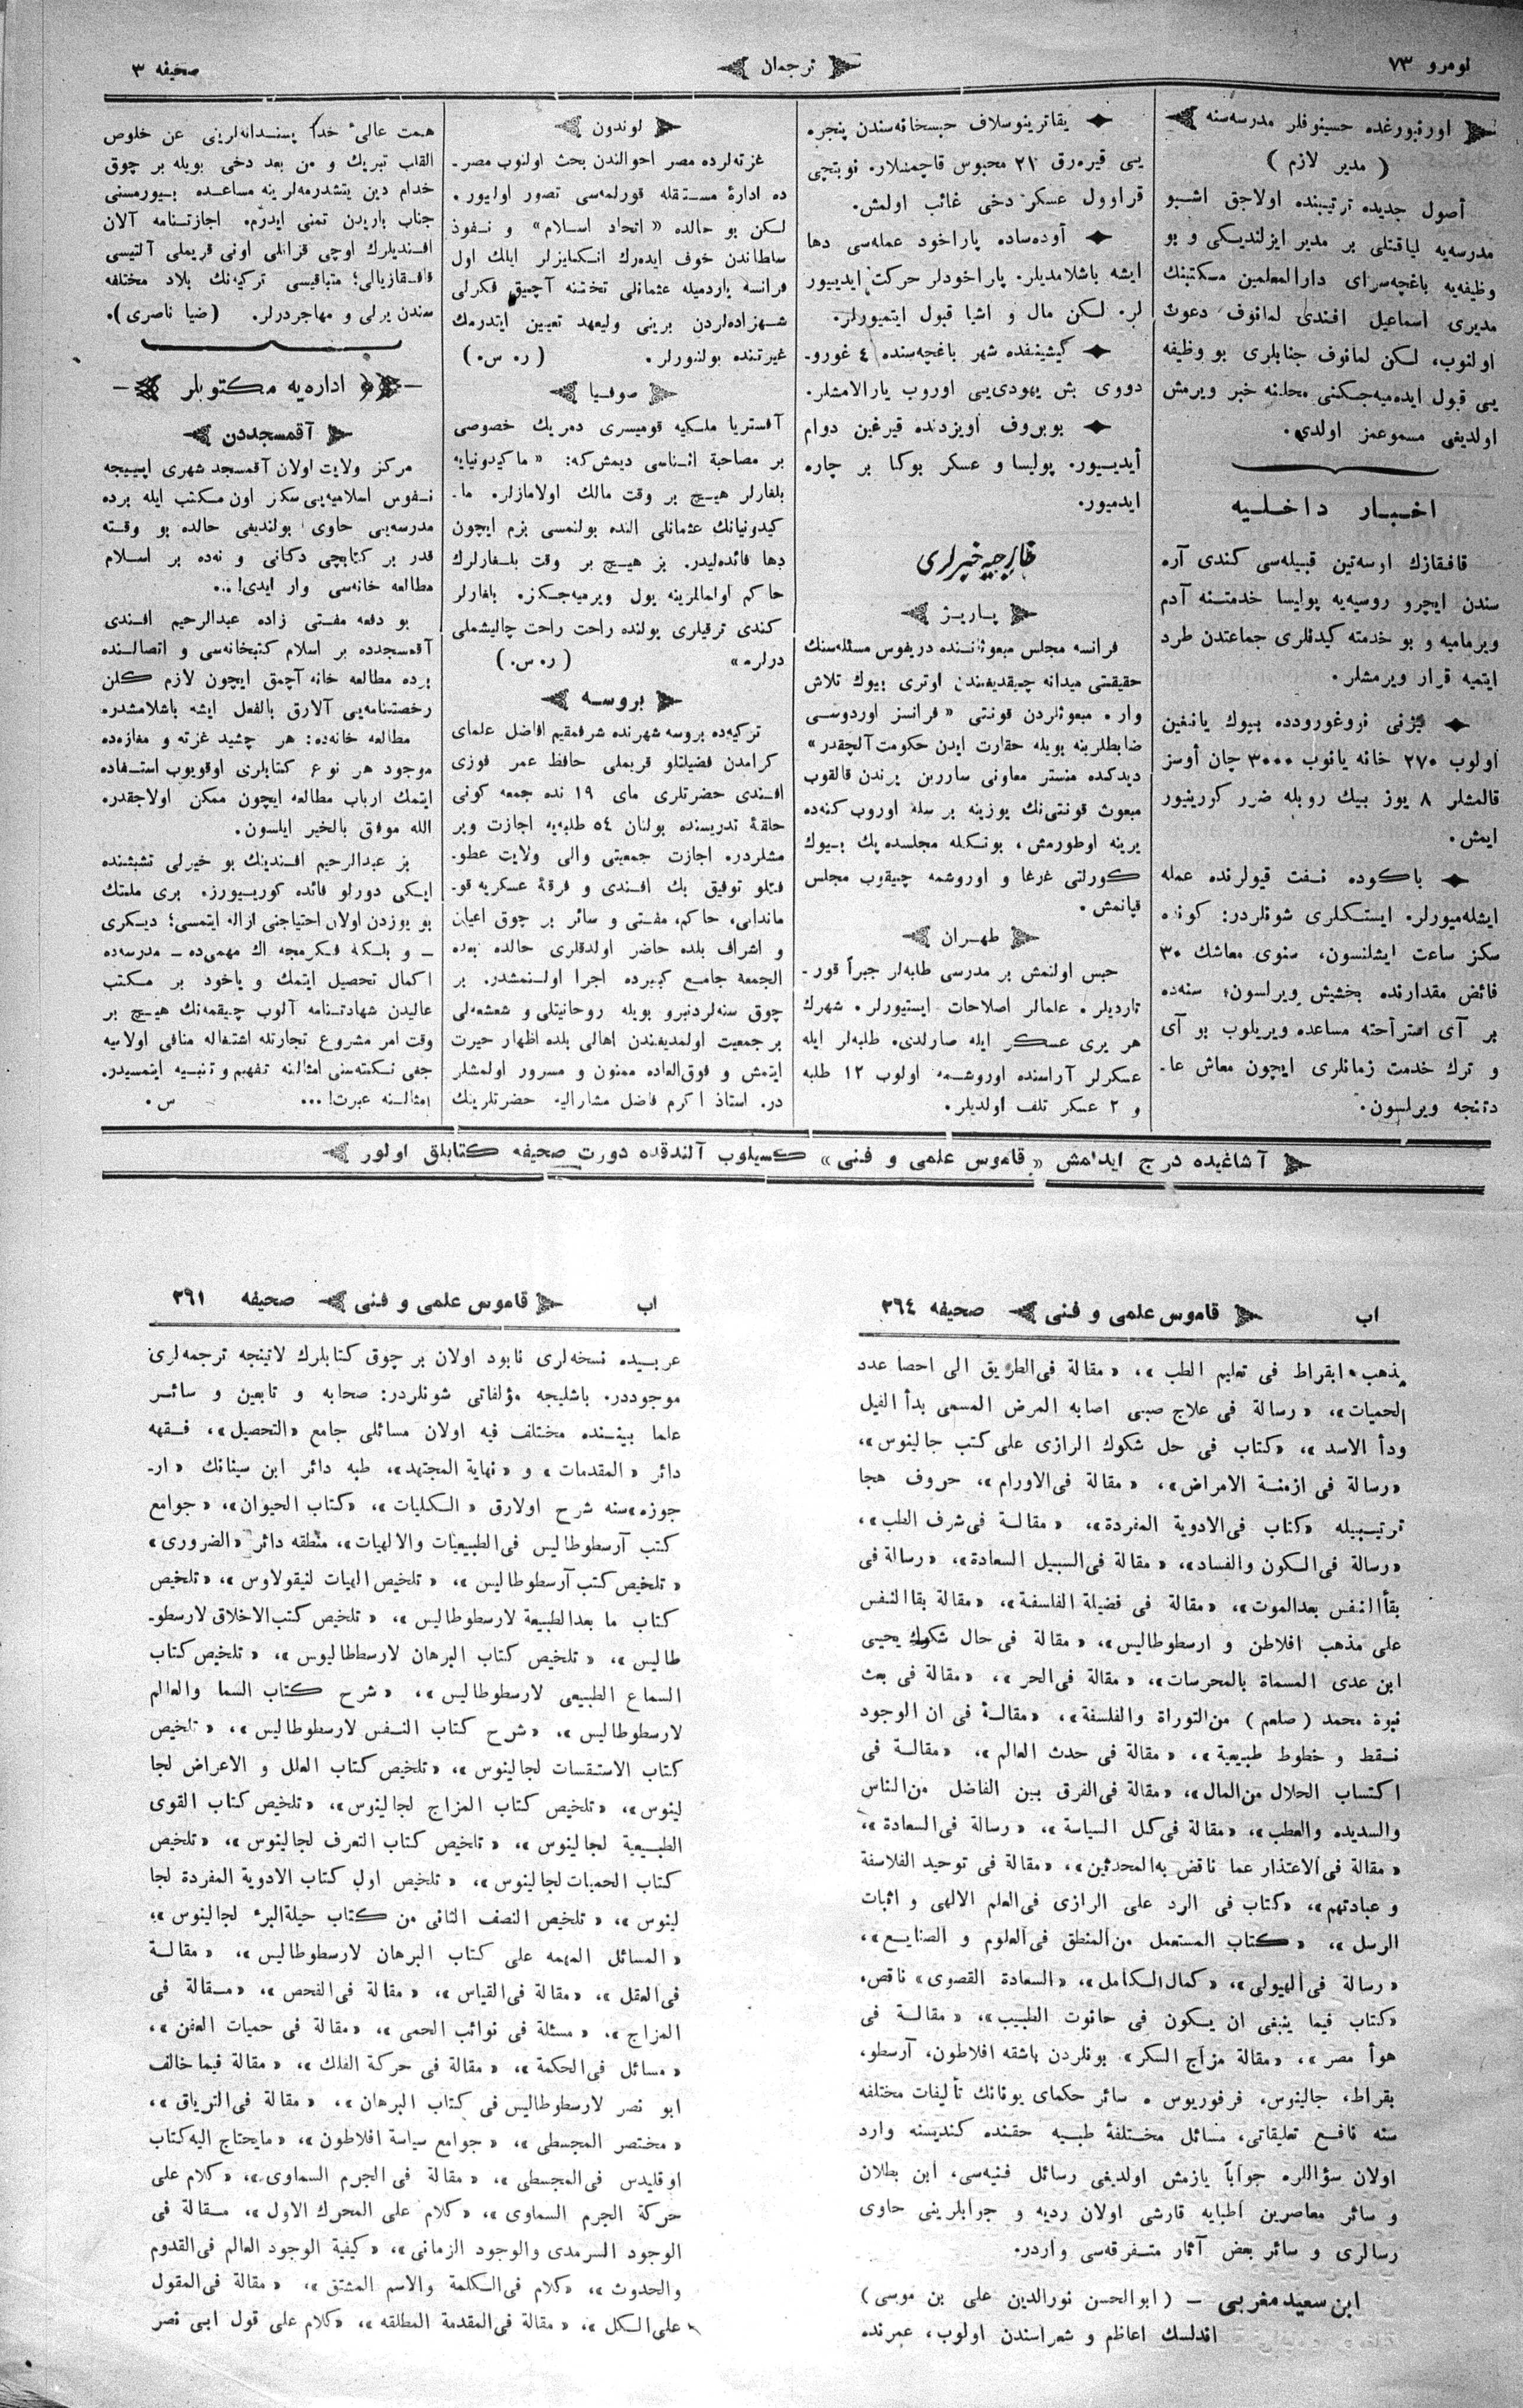 نومرو ٧٣
ترجمان
صحیفه ٣
اورنبورغده حسینوفلر مدرسه‌سنه
( مدیر لازم )
أصول جدیده ترتیبنده اولاجق اشبو
مدرسه‌یه لیاقتلی بر مدیر ایزلندیکی و بو
وظیفه‌یه باغچه‌سرای دارالمعلمین مکتبنك
مدیری اسماعیل افندی لمانوف دعوت
اولنوب، لکن لمانوف جنابلری بو وظیفه
یی قبول ایده‌میه‌جکنی محلنه خبر ویرمش
اولدیغی مسموعمز اولدی.
اخبار داخلیه
قافقازك ارسه‌تین قبیله‌سی کندی آره
سندن ایچرو روسیه‌یه پولیسا خدمتنه آدم
ویرمامیه و بو خدمته کیدنلری جماعتدن طرد
ایتمیه قرار ویرمشلر.
نیژنی نووغورودده بیوك یانغین
اولوب ٢٧٠ خانه یانوب ٣٠٠٠ جان أوسز
قالمشلر ٨ یوز بیك روبله ضرر کورینیور
ایمش.
باکوده نفت قیولرنده عمله
ایشله‌میورلر. ایستکلری شونلردر: کونده
سکز ساعت ایشلنسون، سنوی معاشك ٣٠
فائض مقدارنده بخشیش ویرلسون؛ سنه‌ده
بر آی استراحته مساعده ویریلوب بو آی
و ترك خدمت زمانلری ایچون معاش عا-
دتنجه ویرلسون.
یقاترینوسلاف حبسخانه‌سندن پنجره
یی قیره‌رق ٢١ محبوس قاچمشلار. نوبتچی
قراوول عسکر دخی غائب اولمش.
آوده‌ساده پاراخود عمله‌سی دها
ایشه باشلامدیلر. پاراخودلر حرکت ایدییور
لر. لکن مال و اشیا قبول ایتمیورلر.
کیشینفده شهر باغچه‌سنده ٤ غورو-
دووی بش یهودی‌یی اوروب یارالامشلر.
بوبروف أویزدنده قیرغین دوام
أیدییور. پولیسا و عسکر بوکا بر چاره
ایدمیور.
خارجیه خبرلری
پاریز
فرانسه مجلس مبعوثاننده دریفوس مسئله‌سنك
حقیقتی میدانه چیقدیغندن اوتری بیوك تلاش
وار. مبعوثلردن قونتی « فرانسز اوردوسی
ضابطلرینه بویله حقارت ایدن حکومت آلچقدر»
دیدکده منستر معاونی سارربن یرندن قالقوب
مبعوث قونتی‌نك یوزینه بر سله اوروب کنه‌ده
یرینه اوطورمش، بونکله مجلسده پك بیوك
کورلتی غرغا و اوروشمه چیقوب مجلس
قپانمش.
طهران
حبس اولنمش بر مدرسی طلبه‌لر جبراً قور-
تاردیلر. علمالر اصلاحات ایستیورلر. شهرك
هر یری عسکر ایله صارلدی. طلبه‌لر ایله
عسکرلر آراسنده اوروشمه اولوب ١٢ طلبه
و ٢ عسکر تلف اولدیلر.
لوندون
غزته‌لرده مصر احوالندن بحث اولنوب مصر-
ده ادارهٔ مستقله قورلمه‌سی تصور اولیور.
لکن بو حالده « اتحاد اسلام» و نفوذ
سلطاندن خوف ایده‌رك انکلیزلر ایلك اول
فرانسه یاردمیله عثمانلی تختنه آچیق فکرلی
شهزاده‌لردن برینی ولیعهد تعیین ایتدرمك
غیرتنده بولنورلر. ( ر. س.)
صوفیا
آفستریا ملکیه قومیسری دمریك خصوصی
بر مصاحبهٔ اثناسی دیمش‌که: « ماکیدونیایه
بلغارلر هیچ بر وقت مالك اولامازلر. ما-
کیدونیانك عثمانلی النده بولنمسی بزم ایچون
دها فائده‌لیدر. بز هیچ بر وقت بلغارلرك
حاکم اولمالرینه یول ویرمیه‌جکز. بلغارلر
کندی ترقیلری یولنده راحت راحت چالیشملی
درلر.» ( ر. س.)
بروسه
ترکیه‌ده بروسه شهرنده شرفمقیم افاضل علمای
کرامدن فضیلتلو قریملی حافظ عمر فوزی
افندی حضرتلری مای ١٩ نده جمعه کونی
حلقهٔ تدریسنده بولنان ٥٤ طلبه‌یه اجازت ویر
مشلردر. اجازت جمعیتی والی ولایت عطو-
فتلو توفیق بك افندی و فرقهٔ عسکریه قو-
ماندانی، حاکم، مفتی و سائر بر چوق اعیان
و اشراف بلده حاضر اولدقلری حالده بعده
الجمعه جامع کبیرده اجرا اولنمشدر. بر
چوق سنه‌لردنبرو بویله روحانیتلی و شعشعه‌لی
بر جمعیت اولمدیغندن اهالی بلده اظهار حیرت
ایتمش و فوق‌العاده ممنون و مسرور اولمشلر
در. استاذ اکرم فاضل مشارالیه حضرتلرینك
همت عالیٔ خدا پسندانه‌لرینی عن خلوص
القلب تبریك و من بعد دخی بویله بر چوق
خدام دین یتشدرمه‌لرینه مساعده بیورمسنی
جناب باریدن تمنی ایدرم. اجازتنامه آلان
افندیلرك اوچی قزانلی اونی قریملی آلتیسی
قافقازیالی؛ متباقیسی ترکیه‌نك بلاد مختلفه
سندن یرلی و مهاجردرلر. (ضیا ناصری).
اداره‌یه مکتوبلر
آقمسجددن
مرکز ولایت اولان آقمسجد شهری اپییجه
نفوس اسلامیه‌یی سکز اون مکتب ایله برده
مدرسه‌یی حاوی بولندیغی حالده بو وقته
قدر بر کتابچی دکانی و نه‌ده بر اسلام
مطالعه خانه‌سی وار ایدی!...
بو دفعه مفتی زاده عبدالرحیم افندی
آقمسجدده بر اسلام کتبخانه‌سی و اتصالنده
برده مطالعه خانه آچمق ایچون لازم کلن
رخصتنامه‌یی آلارق بالفعل ایشه باشلامشدر.
مطالعه خانه‌ده: هر چشید غزته و مغازه‌ده
موجود هر نوع کتابلری اوقویوب استفاده
ایتمك ارباب مطالعه ایچون ممکن اولاجقدر.
الله موفق بالخیر ایلسون.
بز عبدالرحیم افندینك بو خیرلی تشبثنده
ایکی دورلو فائده کوریورز. بری ملتك
بو یوزدن اولان احتیاجنی ازاله ایتمسی؛ دیکری
– و بلکه فکرمجه اك مهمی‌ده – مدرسه‌ده
اکمال تحصیل ایتمك و یاخود بر مکتب
عالیدن شهادتنامه آلوب چیقمه‌نك هیچ بر
وقت امر مشروع تجارتله اشتغاله منافی اولامیه
جغی نکته‌سنی امثالنه تفهیم و تنبیه ایتمسیدر.
امثالنه عبرت!... س.
آشاغیده درج ایدلمش « قاموس علمی و فنی» کسیلوب آلندقده دورت صحیفه کتابلق اولور
اب
قاموس علمی و فنی
صحیفه ٢٦٤
مذهب ابقراط فی تعلیم الطب »، « مقالة فی‌الطریق الی احصا عدد
الحمیات»، « رسالة فی علاج صبی اصابه المرض المسمی بدأ الفیل
ودأ الاسد »، «کتاب فی حل شکوك الرازی علی کتب جالینوس»،
«رسالة فی ازمنة الامراض»، « مقالة فی‌الاورام »، حروف هجا
ترتیبیله «کتاب فی‌الادویة المفردة»، « مقالة فی‌شرف الطب»،
«رسالة فی السکون والفساد»، « مقالة فی‌السبیل السعادة»، «رسالة فی
بقأالنفس بعدالموت»، «مقالة فی فضیلة الفلسفة»، «مقالة بقاالنفس
علی مذهب افلاطن و ارسطوطالیس»، « مقالة فی حال شکوك یحیی
ابن عدی المسماة بالمحرسات»، « مقالة فی‌الحر »، «مقالة فی بعث
نبوة محمد (صلعم) من‌التوراة والفلسفة»، «مقالة فی ان الوجود
نقط و خطوط طبیعیة »، « مقالة فی حدث العالم »، «مقالة فی
اکتساب الحلال من‌المال»، «مقالة فی‌الفرق بین الفاضل من‌الناس
والسدیده والعطب»، «مقالة فی‌کل السیاسة »، « رسالة فی‌السعادة »،
« مقالة فی‌الاعتذار عما ناقض به‌المحدثین»، «مقالة فی توحید الفلاسفة
و عبادتهم»، «کتاب فی الرد علی الرازی فی‌العلم الالهی و اثبات
الرسل »، « کتاب المستعمل من‌المنطق فی‌العلوم و الصنایع»،
« رسالة فی‌الهیولی»، « کمال‌الکامل»، «السعادة القصوی» ناقص.
«کتاب فیما ینبغی ان یکون فی حانوت الطبیب»، « مقالة فی
هوأ مصر»، «مقالة مزاج السکر» بونلردن باشقه افلاطون، آرسطو،
بقراط، جالینوس، فرفوریوس . سائر حکمای یونانك تألیفات مختلفه
سنه نافع تعلیقاتی، مسائل مختلفهٔ طبیه حقنده کندیسنه وارد
اولان سؤاللره جواباً یازمش اولدیغی رسائل فنیه‌سی، ابن بطلان
و سائر معاصرین اطبایه قارشی اولان ردیه و جوابلرینی حاوی
رسالری و سائر بعض آثار متفرقه‌سی واردر.
ابن سعید مغربی – (ابوالحسن نورالدین علی بن موسی)
اندلسك اعاظم و شعراسندن اولوب، عمرنده
اب
قاموس علمی و فنی
صحیفه ٢٦١
عربیده نسخه‌لری نابود اولان بر چوق کتابلرك لاتینجه ترجمه‌لری
موجوددر. باشلیجه مؤلفاتی شونلردر: صحابه و تابعین و سائر
علما بیننده مختلف فیه اولان مسائلی جامع «التحصیل»، فقهه
دائر « المقدمات» و «نهایة المجتهد»، طبه دائر ابن سینانك «ار-
جوزه»سنه شرح اولارق « الکلیات»، «کتاب الحیوان»، «جوامع
کتب آرسطوطالیس فی‌الطبیعیات والالهیات»، منطقه دائر «الضروری»
« تلخیص کتب آرسطوطالیس»، « تلخیص الهیات لنیقولاوس»، «تلخیص
کتاب ما بعدالطبیعة لارسطوطالیس»، « تلخیص کتب‌الاخلاق لارسطو-
طالیس»، « تلخیص کتاب البرهان لارسططالیوس»، « تلخیص کتاب
السماع الطبیعی لارسطوطالیس»، « شرح کتاب السما والعالم
لارسطوطالیس»، «شرح کتاب النفس لارسطوطالیس»، « تلخیص
کتاب الاستقسات لجالینوس»، «تلخیص کتاب العلل و الاعراض لجا
لینوس»، «تلخیص کتاب المزاج لجالینوس»، «تلخیص کتاب القوی
الطبیعیة لجالینوس»، « تلخیص کتاب التعرف لجالینوس»، «تلخیص
کتاب الحمیات لجالینوس»، « تلخیص اول کتاب الادویة المفردة لجا
لینوس»، « تلخص النصف الثانی من کتاب حیلةالبرء لجالینوس»،
« المسائل المهمه علی کتاب البرهان لارسطوطالیس»، « مقالة
فی‌العقل»، «مقالة فی‌القیاس»، « مقالة فی‌الفحص»، «مقالة فی
المزاج»، « مسئلة فی نوائب الحمی»، «مقالة فی حمیات العفن»،
« مسائل فی‌الحکمة»، « مقالة فی حرکة الفلك»، « مقالة فیما خالف
ابو نصر لارسطوطالیس فی کتاب البرهان»، « مقالة فی‌التریاق»،
« مختصر المجسطی»، « جوامع سیاسة افلاطون»، «مایحتاج الیه‌کتاب
اوقلیدس فی‌المجسطی»، « مقالة فی الجرم السماوی»، «کلام علی
حرکة الجرم السماوی»، «کلام علی المحرك الاول»، مقالة فی
الوجود السرمدی والوجود الزمانی»، «کیفیة الوجود العالم فی‌القدوم
والحدوث»، «کلام فی‌الکلمة والاسم المشتق»، « مقالة فی‌المقول
علی‌الکل»، « مقالة فی‌المقدمة المطلقه»، «کلام علی قول ابی نصر